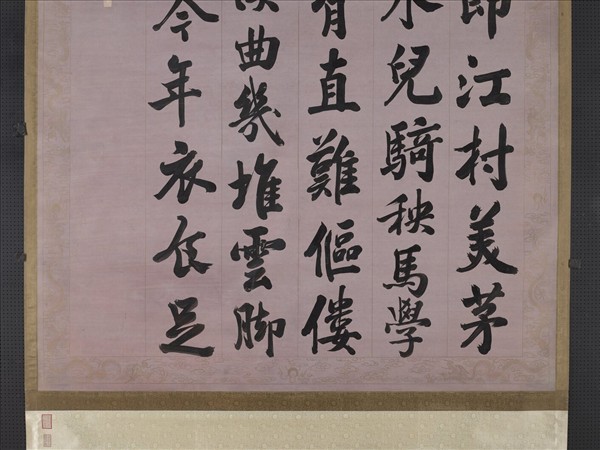 郎江村美茅
水兒騎秧馬學
背直難傴僂
曲幾堆雲脚
今年衣食足